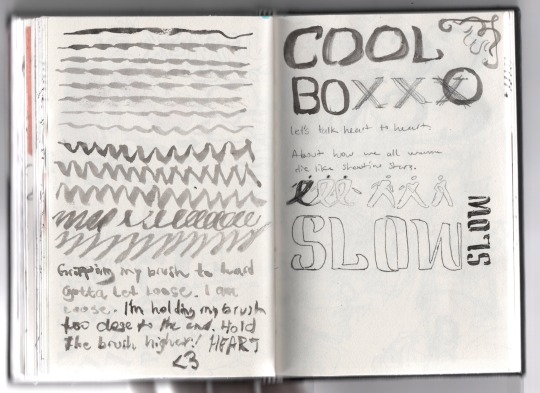 Gripping my brush to hard
Gotta Let Loose. I am
loose. I'm holding my brush
too close to the end. Hold
the brush higher! HEART
<3
COOL
BOXXX
Let's talk heart to heart.
About how we all wanna
die like shooting stars.
SLOW
SLOW